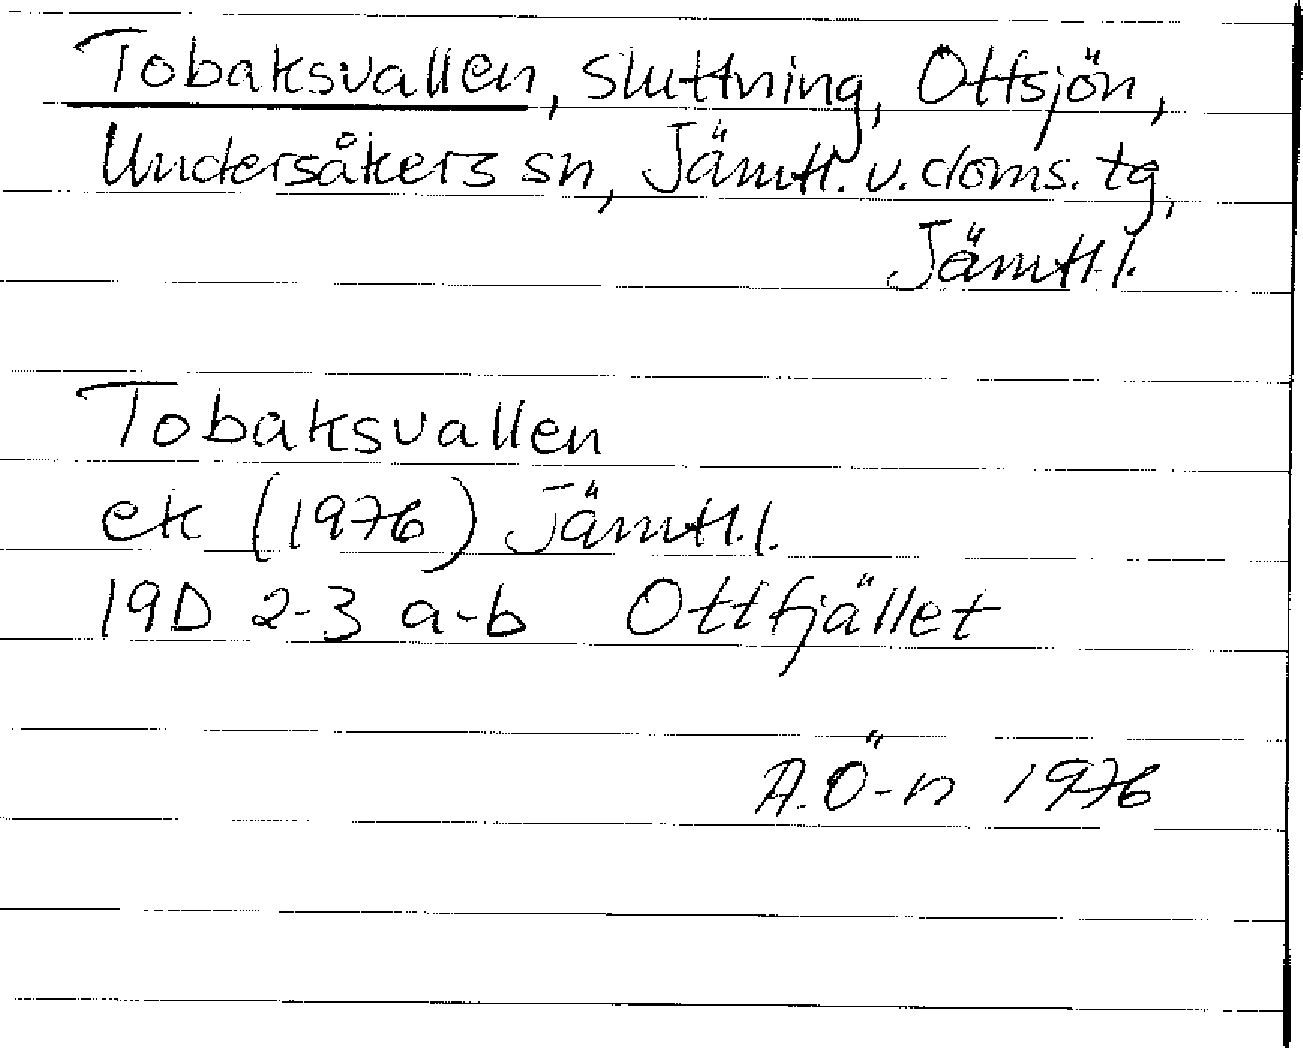 Tobaksvallen, sluttning, Ottsjön,
Undersåkers sn, Jämtl. v. doms. tg,
Jämtl. l.
Tobaksvallen
ek (1976) Jämtl. l.
19D 2-3 a-b Ottfjället
A. Ö-n 1976